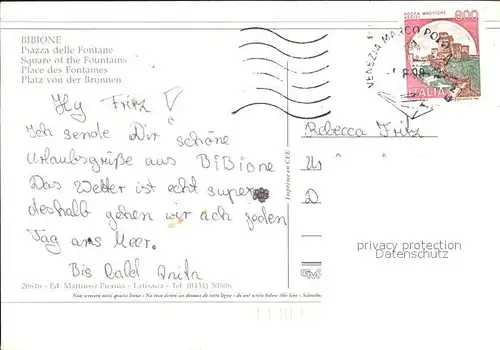 BIBIONE
Piazza delle Fontane
Square of the Fountains
Place des Fontames
Platz von der Brunnen.
Hy Fritz
Ich sende Dir schöne
Urlaubsgrüße aus BiBione
Das Wetter ist echt super
deshalb gehen wir ach jeden
Tag ans Meer.
Bis bald
20646 - Ed. Matteucci Pierina - Latisana - Tel. (0431) 50308
Non scrivere sotto questa linea - Ne rien écrire au dessous de cette ligne - do not write below this line -
Imprime en CEE
ROCCA MAGGIORE
ASSISI
800
ITALIA
VENEZIA MARCO POLO
Rebecca Fritz
D
privacy protection
Datenschutz